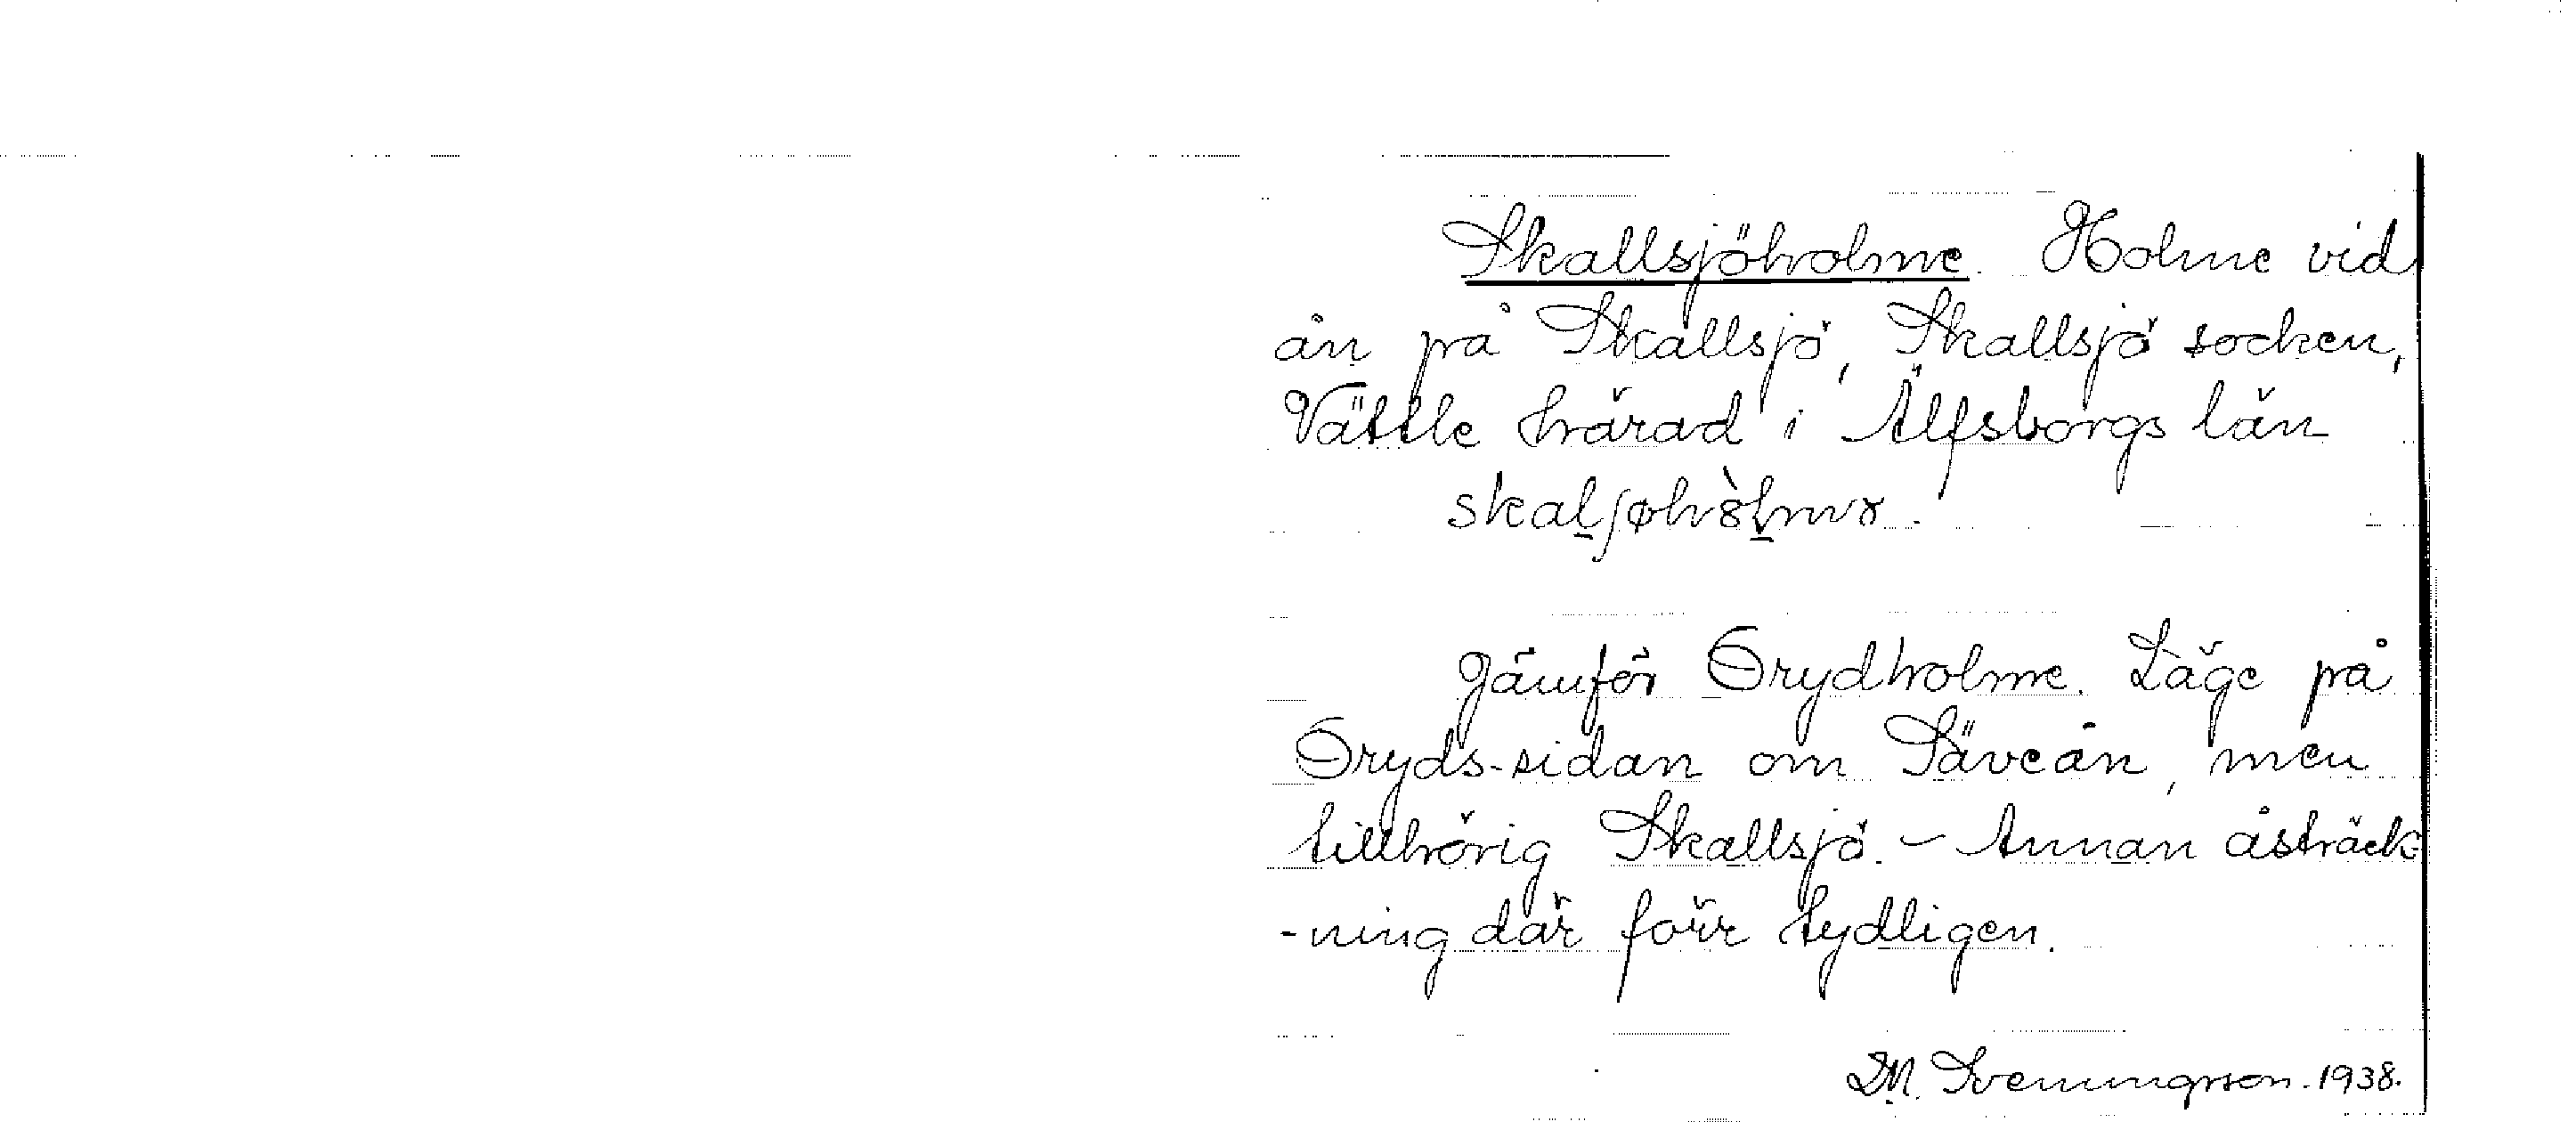 Skallsjöholme. Holme vid
ån på Skallsjö, Skallsjö socken,
Vättle härad i Älfsborgs län
Jämför Örydholme. Läge på
Öryds-sidan om Säveån, men
tillhörig Skallsjö. – Annan åsträck-
-ning där förr tydligen.
Sveningsson. 1938.